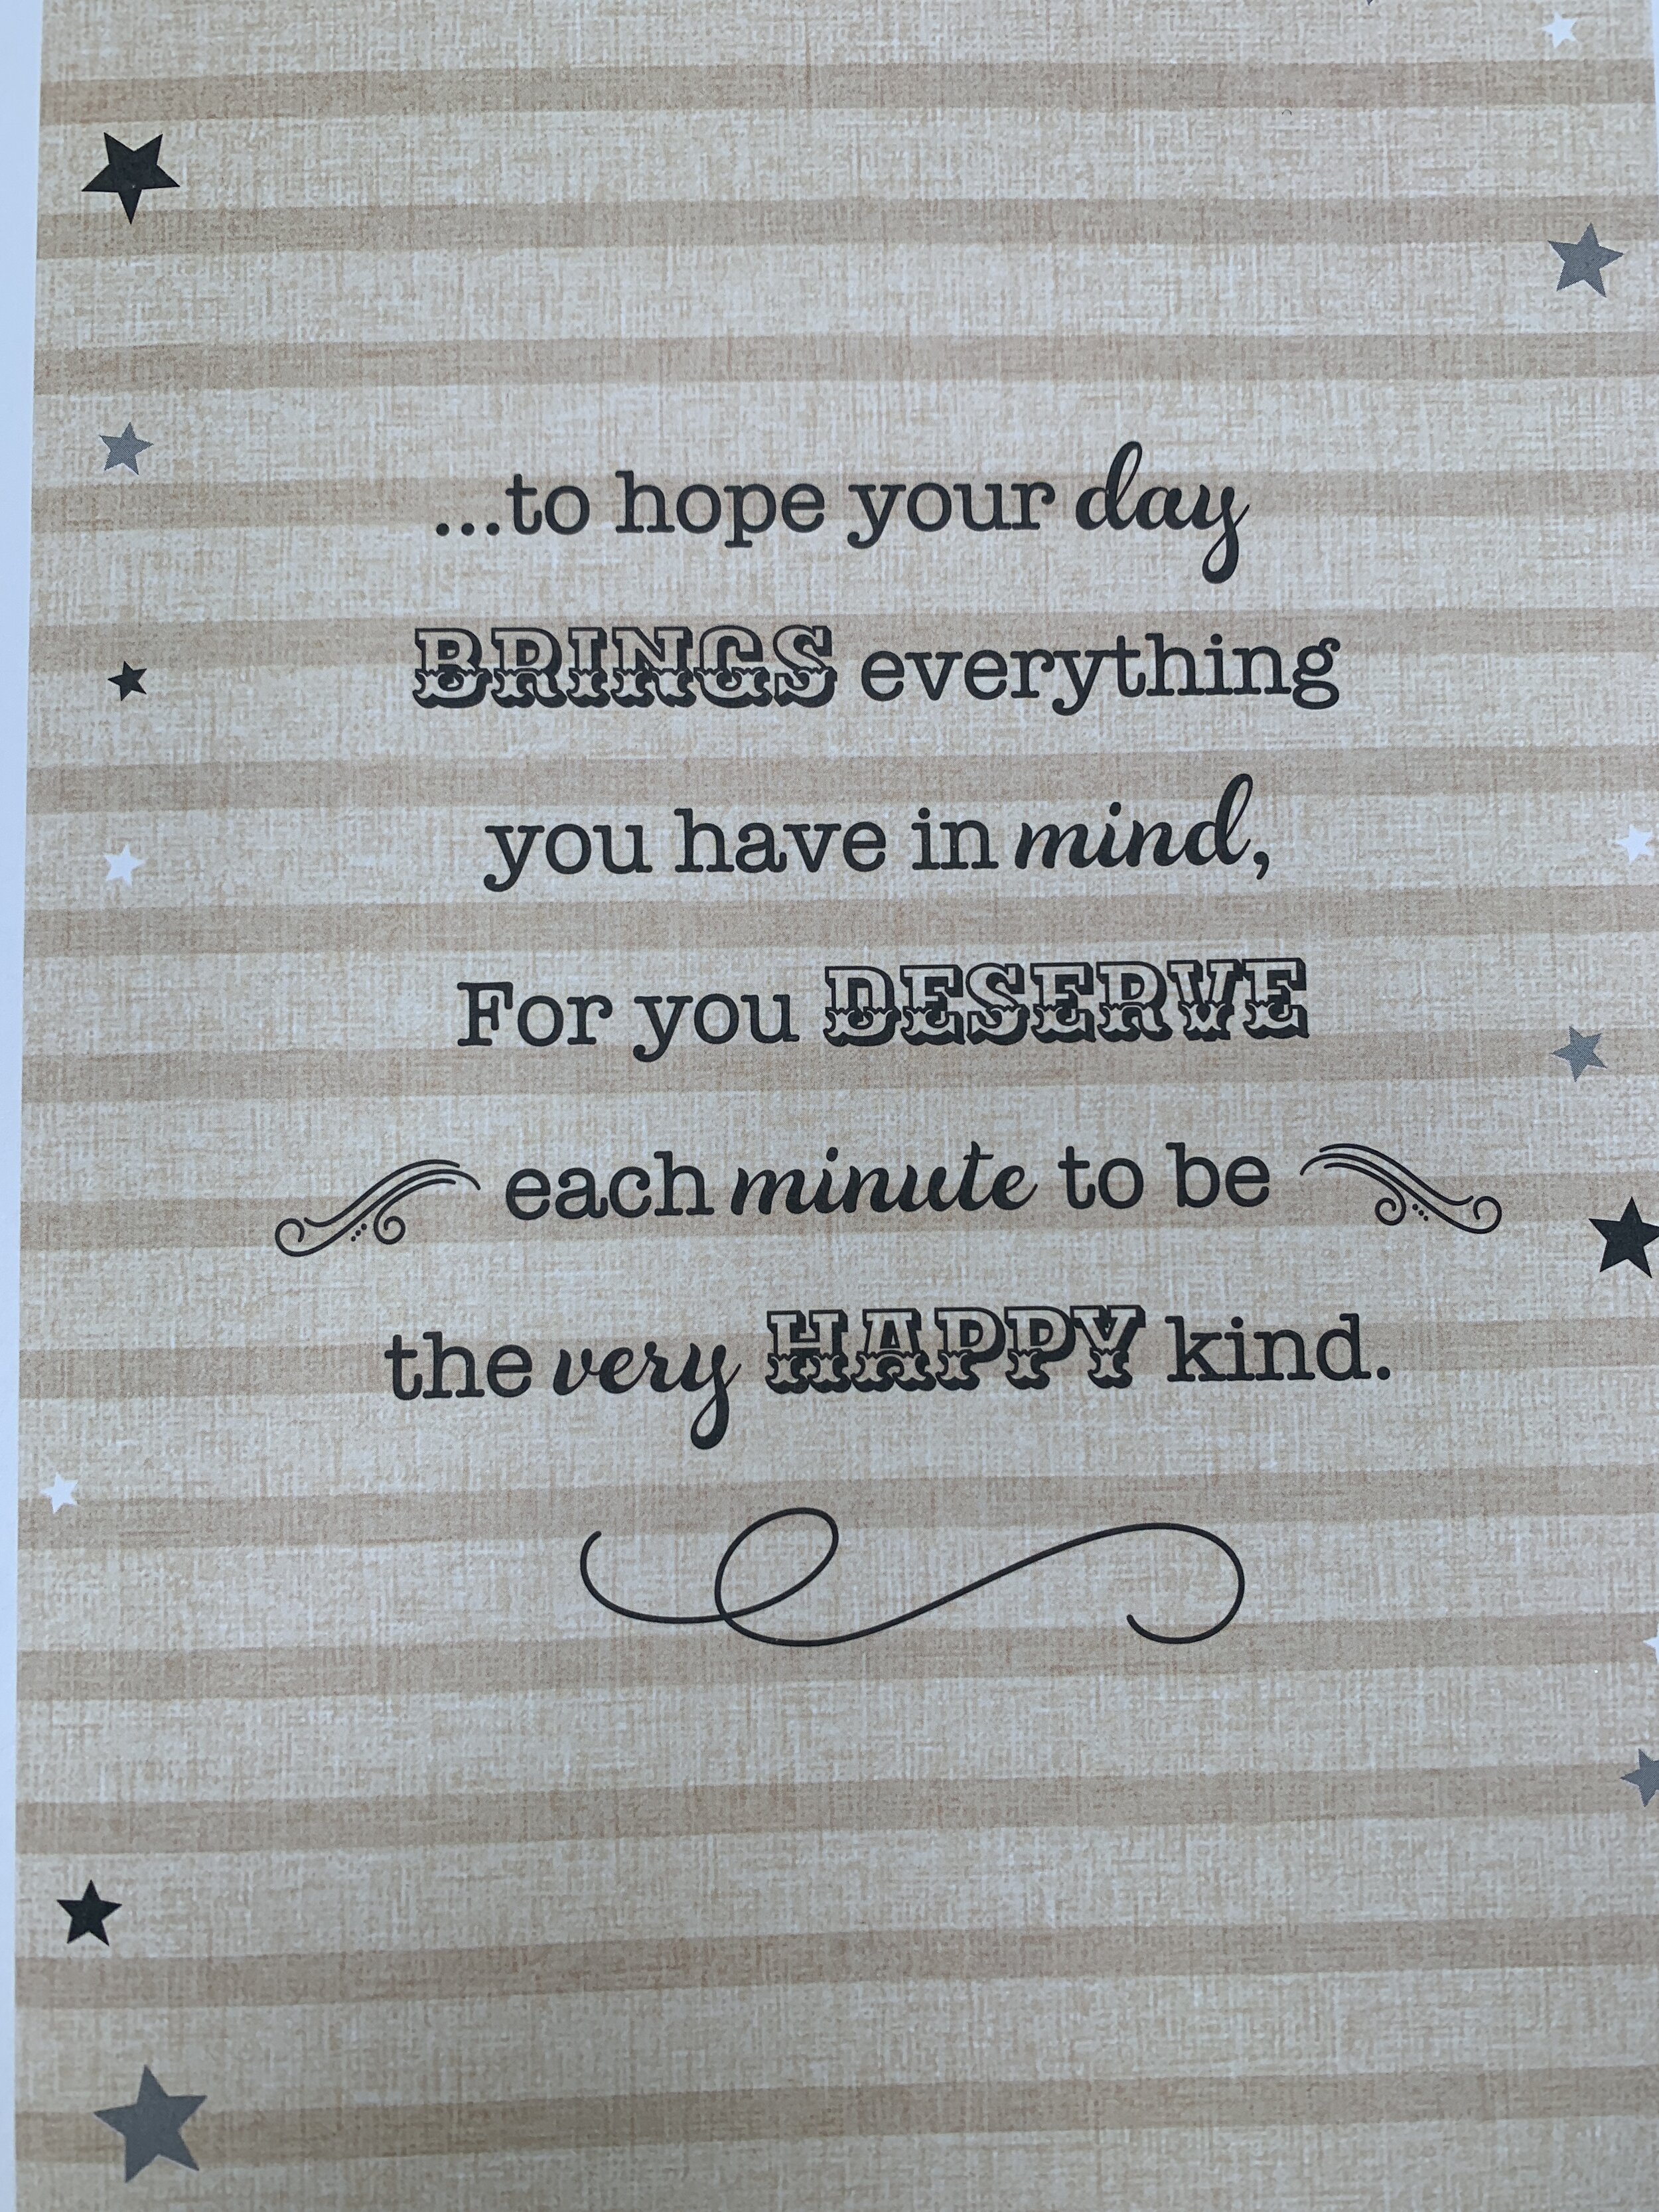 ...to hope your day
BRINGS everything
you have in mind,
For you DESERVE
each minute to be
the very HAPPY kind.